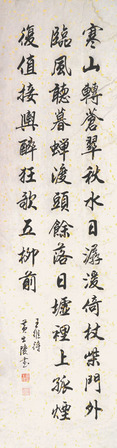 寒山轉蒼翠秋水日潺湲倚杖柴門外
臨風聽暮蟬渡頭餘落日墟裡上孤煙
復值接輿醉狂歌五柳前
王維詩
黃